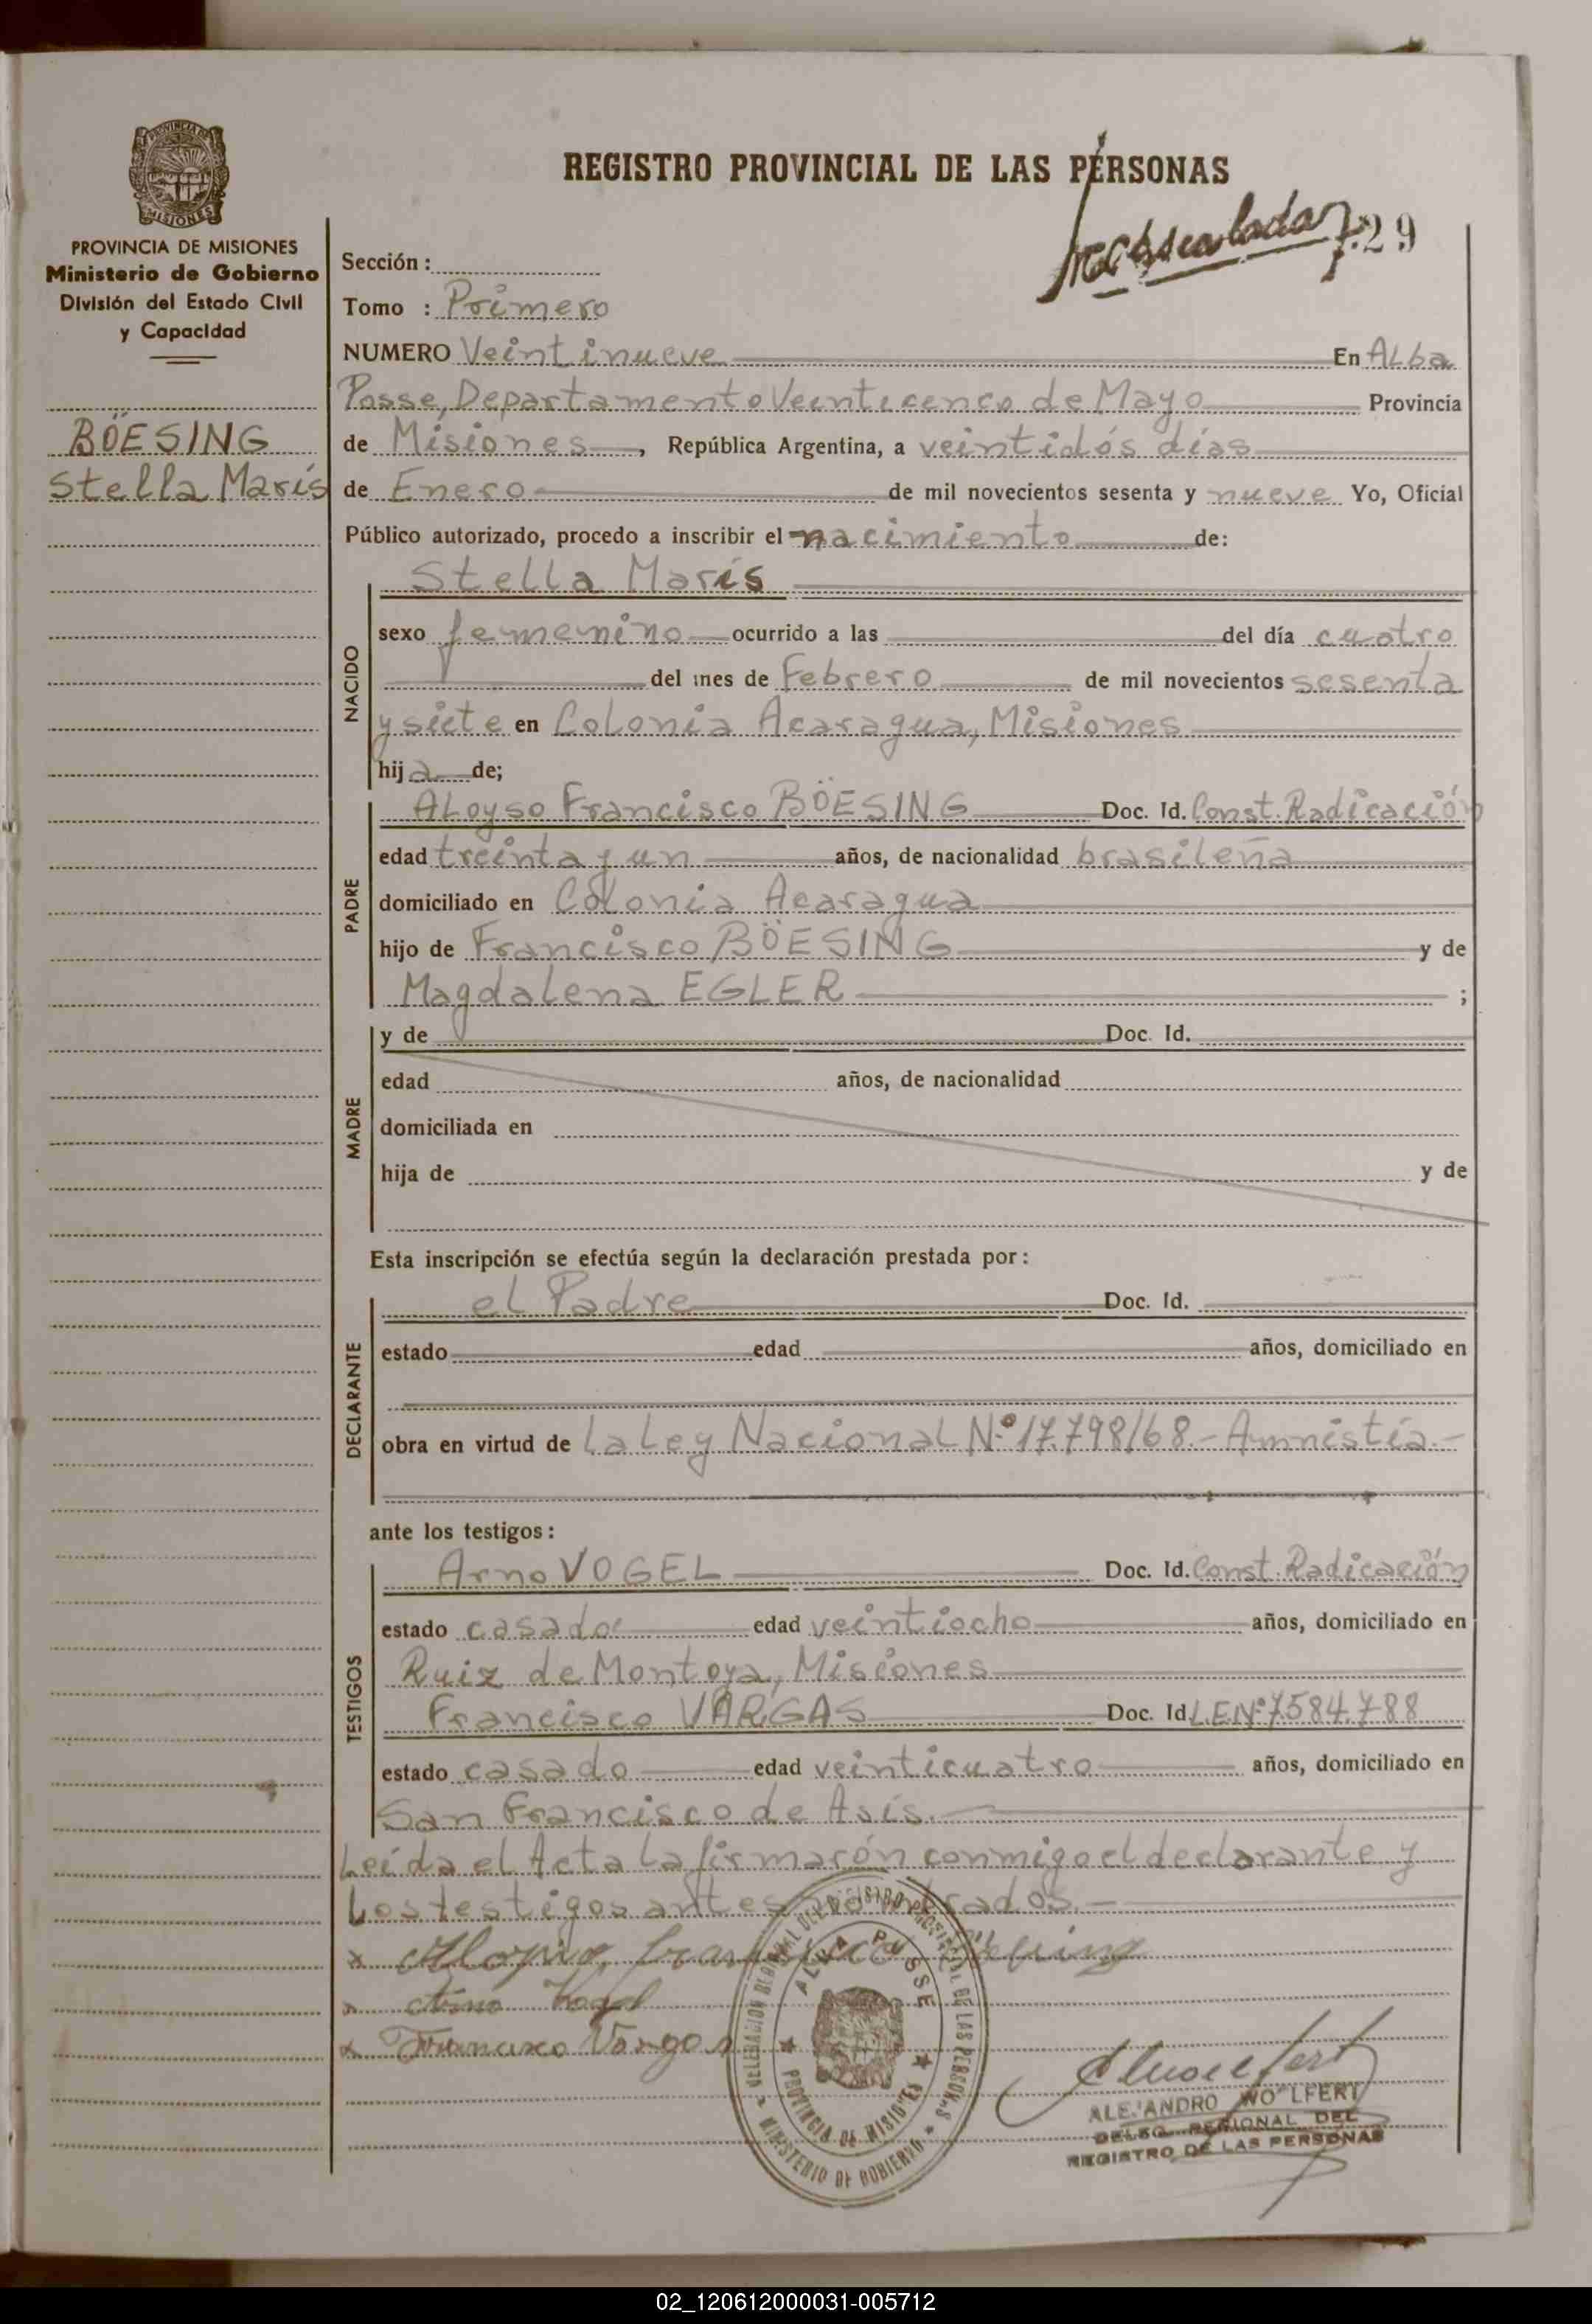 REGISTRO PROVINCIAL DE LAS PERSONAS
PROVINCIA DE MISIONES
Ministerio de Gobierno
División del Estado Civil
y Capacidad
BÖESING
Stella Maris
29
Sección :
Tomo : Primero
NUMERO Veintinueve En Alba
Posse, Departamento Veinticinco de Mayo Provincia
de Misiones, República Argentina, a veintidós días
de Enero de mil novecientos sesenta y nueve Yo, Oficial
Público autorizado, procedo a inscribir el nacimiento de:
NACIDO
Stella Maris
sexo femenino ocurrido a las del día cuatro
del mes de Febrero de mil novecientos sesenta
y siete en Colonia Acaragua, Misiones
hija de;
PADRE
Aloyso Francisco BÖESING Doc. Id. Const. Radicación
edad treinta y un años, de nacionalidad brasileña
domiciliado en Colonia Acaragua
hijo de Francisco BÖESING y de
Magdalena EGLER ;
MADRE
y de Doc. Id.
edad años, de nacionalidad
domiciliada en
hija de y de
Esta inscripción se efectúa según la declaración prestada por:
DECLARANTE
el Padre Doc. Id.
estado edad años, domiciliado en
obra en virtud de la Ley Nacional Nº 17.798/68.- Amnistía.-
ante los testigos:
TESTIGOS
Arno VOGEL Doc. Id. Const. Radicación
estado casado edad veintiocho años, domiciliado en
Ruiz de Montoya, Misiones
Francisco VARGAS Doc. Id. L.E.Nº 7.584.788
estado casado edad veinticuatro años, domiciliado en
San Francisco de Asís.
Leída el Acta la firmarón conmigo el declarante y
los testigos antes nombrados.-
x Aloysio Francisco Böesing
x Arno Vogel
x Francisco Vargas
DELEGACION REGIONAL DEL REGISTRO PROVINCIAL DE LAS PERSONAS
ALBA POSSE
PROVINCIA DE MISIONES
MINISTERIO DE GOBIERNO
ALEJANDRO WOLFERT
DELEG. REGIONAL DEL
REGISTRO DE LAS PERSONAS
02_120612000031-005712